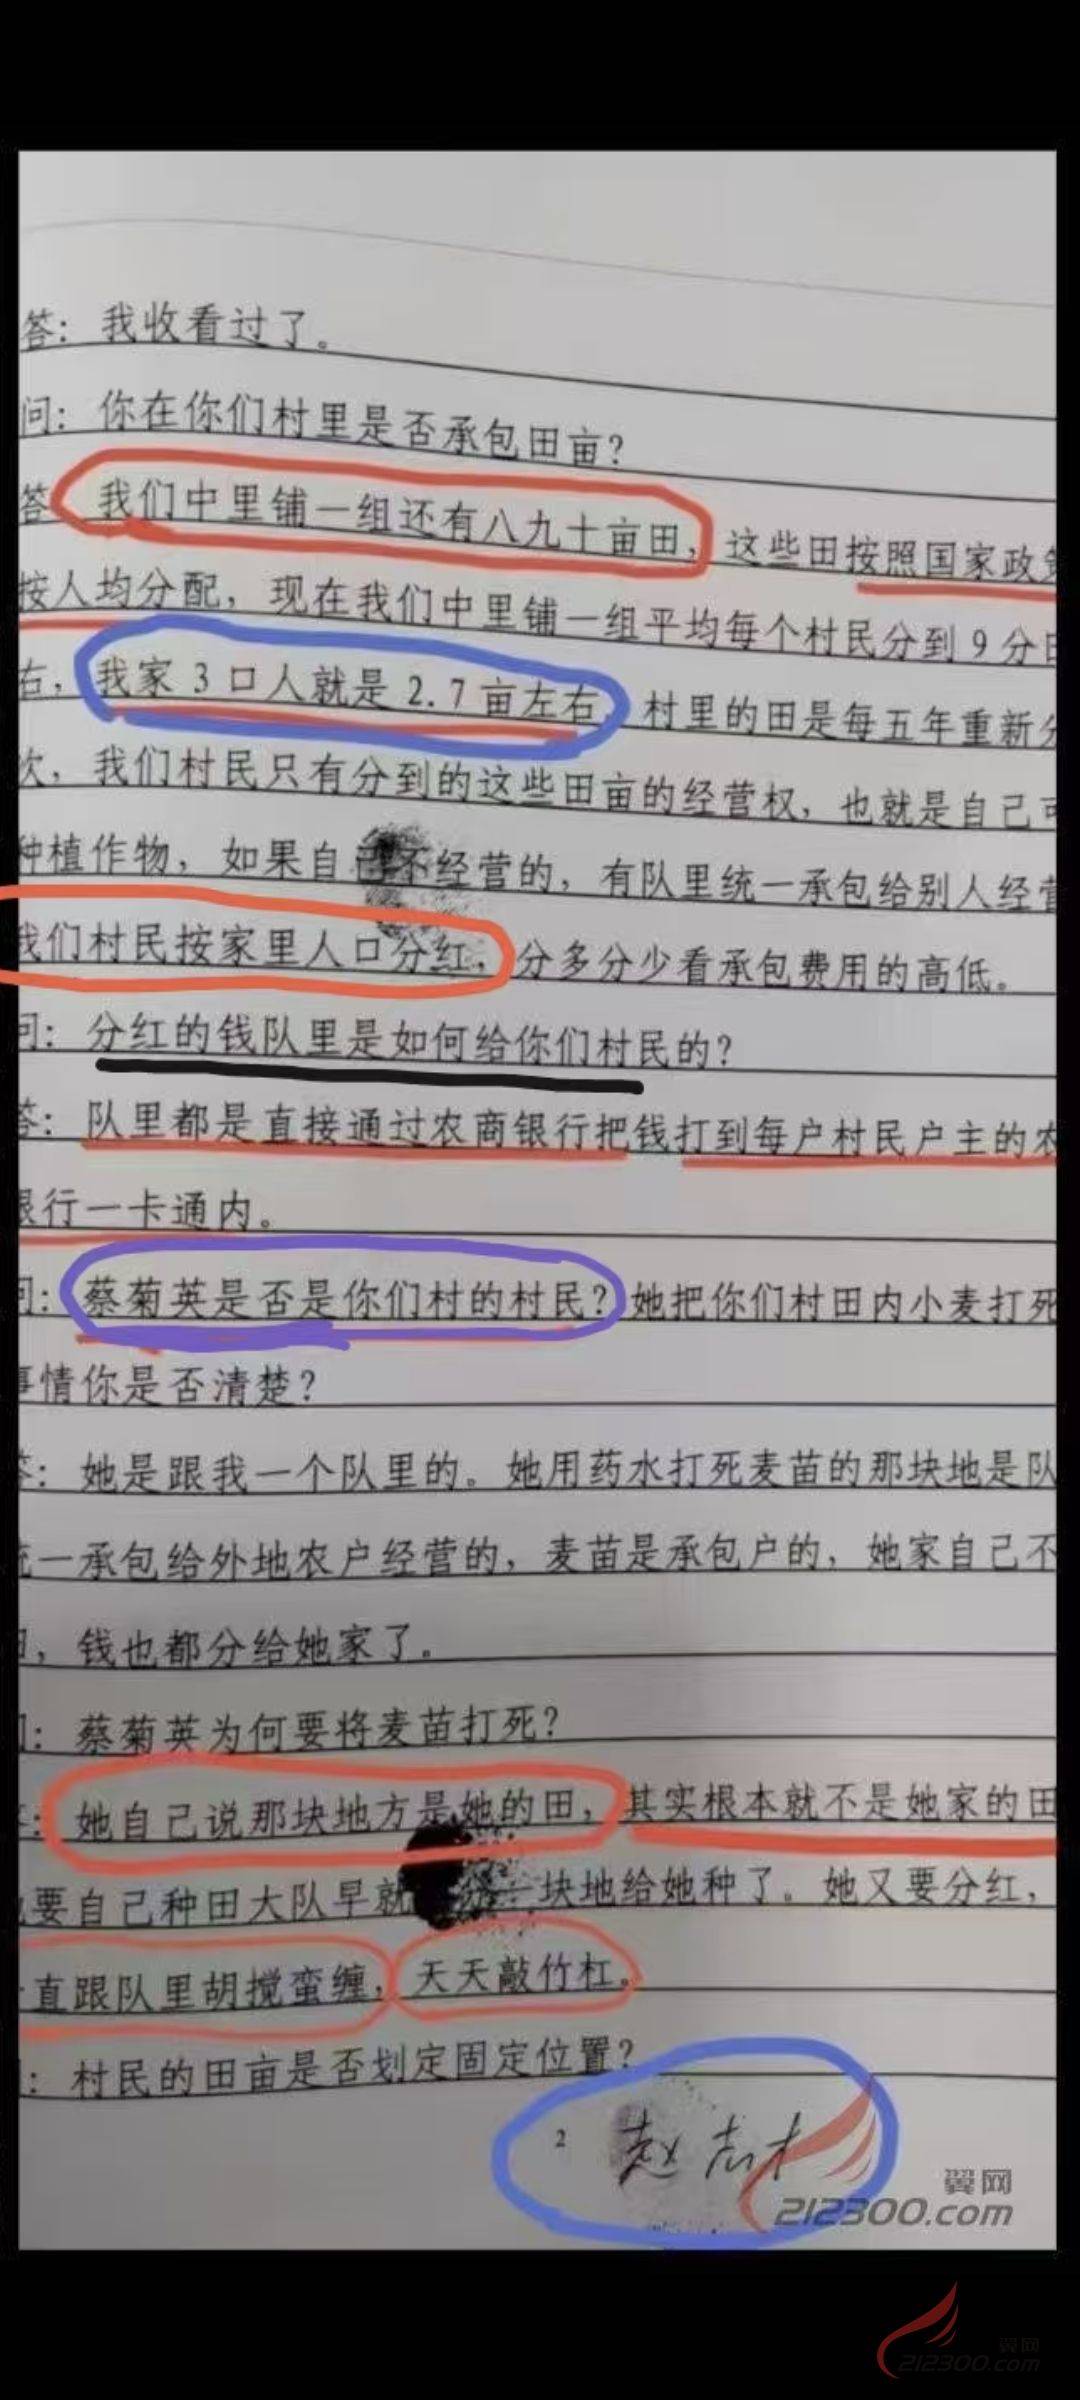 答：我收看过了。
问：你在你们村里是否承包田亩？
答 我们中里铺一组还有八九十亩田，这些田按照国家政
按人均分配，现在我们中里铺一组平均每个村民分到9分
右，我家3口人就是2.7亩左右 村里的田是每五年重新
次，我们村民只有分到的这些田亩的经营权，也就是自己
种植作物，如果自己不经营的，有队里统一承包给别人经
我们村民按家里人口分红，分多分少看承包费用的高低。
问：分红的钱队里是如何给你们村民的？
答：队里都是直接通过农商银行把钱打到每户村民户主的农
银行一卡通内。
问：蔡菊英是否是你们村的村民？她把你们村田内小麦打死
事情你是否清楚？
答：她是跟我一个队里的。她用药水打死麦苗的那块地是队
统一承包给外地农户经营的，麦苗是承包户的，她家自己不
，钱也都分给她家了。
问：蔡菊英为何要将麦苗打死？
答：她自己说那块地方是她的田，其实根本就不是她家的田
要自己种田大队早就 一块地给她种了。她又要分红，
直跟队里胡搅蛮缠，天天敲竹杠。
：村民的田亩是否划定固定位置？
2
赵志才
翼网
212300.com
翼网
212300.com